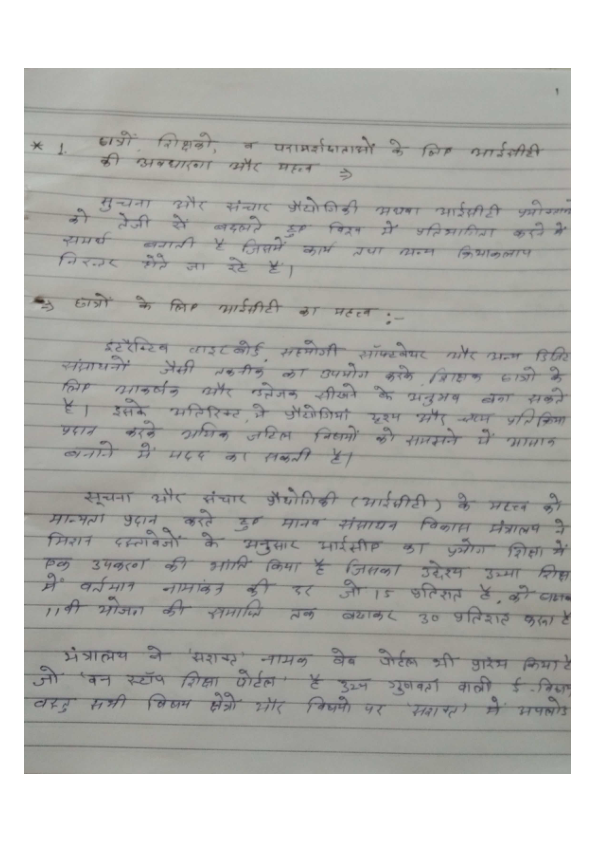 1
* 1. छात्रों, शिक्षकों, व परामर्शदाताओं के लिए आईसीटी
की अवधारणा और महत्व ⇒
सुचना और संचार प्रौद्योगिकी अथवा आईसीटी प्रयोगकर्ता
को तेजी से बदलते हुए विश्व में प्रतिभागिता करने में
समर्थ बनाती है जिसमें कार्य तथा अन्य क्रियाकलाप
निरन्तर होते जा रहे है।
⇒ छात्रों के लिए आईसीटी का महत्व :-
इंटरैक्टिव वाइटबोर्ड, सहयोगी सॉफ्टवेयर और अन्य डिजिट
संसाधनों जैसी तकनीक का उपयोग करके, शिक्षक छात्रों के
लिए आकर्षक और सीखने के अनुभव बना सकते
है। इसके अतिरिक्त, ये प्रौद्योगियां दृश्य और श्रव्य प्रतिक्रिया
प्रदान करके अधिक जटिल विषयों को समझने में आसान
बनाने में मदद कर सकती है।
सूचना और संचार प्रौद्योगिकी (आईसीटी) के महत्व को
मान्यता प्रदान करते हुए मानव संसाधन विकास मंत्रालय ने
मिशन दस्तावेजों के अनुसार आईसीए का प्रयोग शिक्षा में
एक उपकरण की भांति किया है जिसका उद्देश्य उच्च शिक्षा
में वर्तमान नामांकन की दर जो 15 प्रतिशत है, को
11वी योजना की समाप्ति तक बढ़ाकर 30 प्रतिशत करना है
मंत्रालय ने 'सशक्त' नामक वेब पोर्टल भी प्रारंभ किया है
जो 'वन स्टॉप शिक्षा पोर्टल' है उच्च गुणवता वाली ई-विषय
वस्तु सभी विषय क्षेत्रों और विषयो पर 'सशक्त' में अपलोड